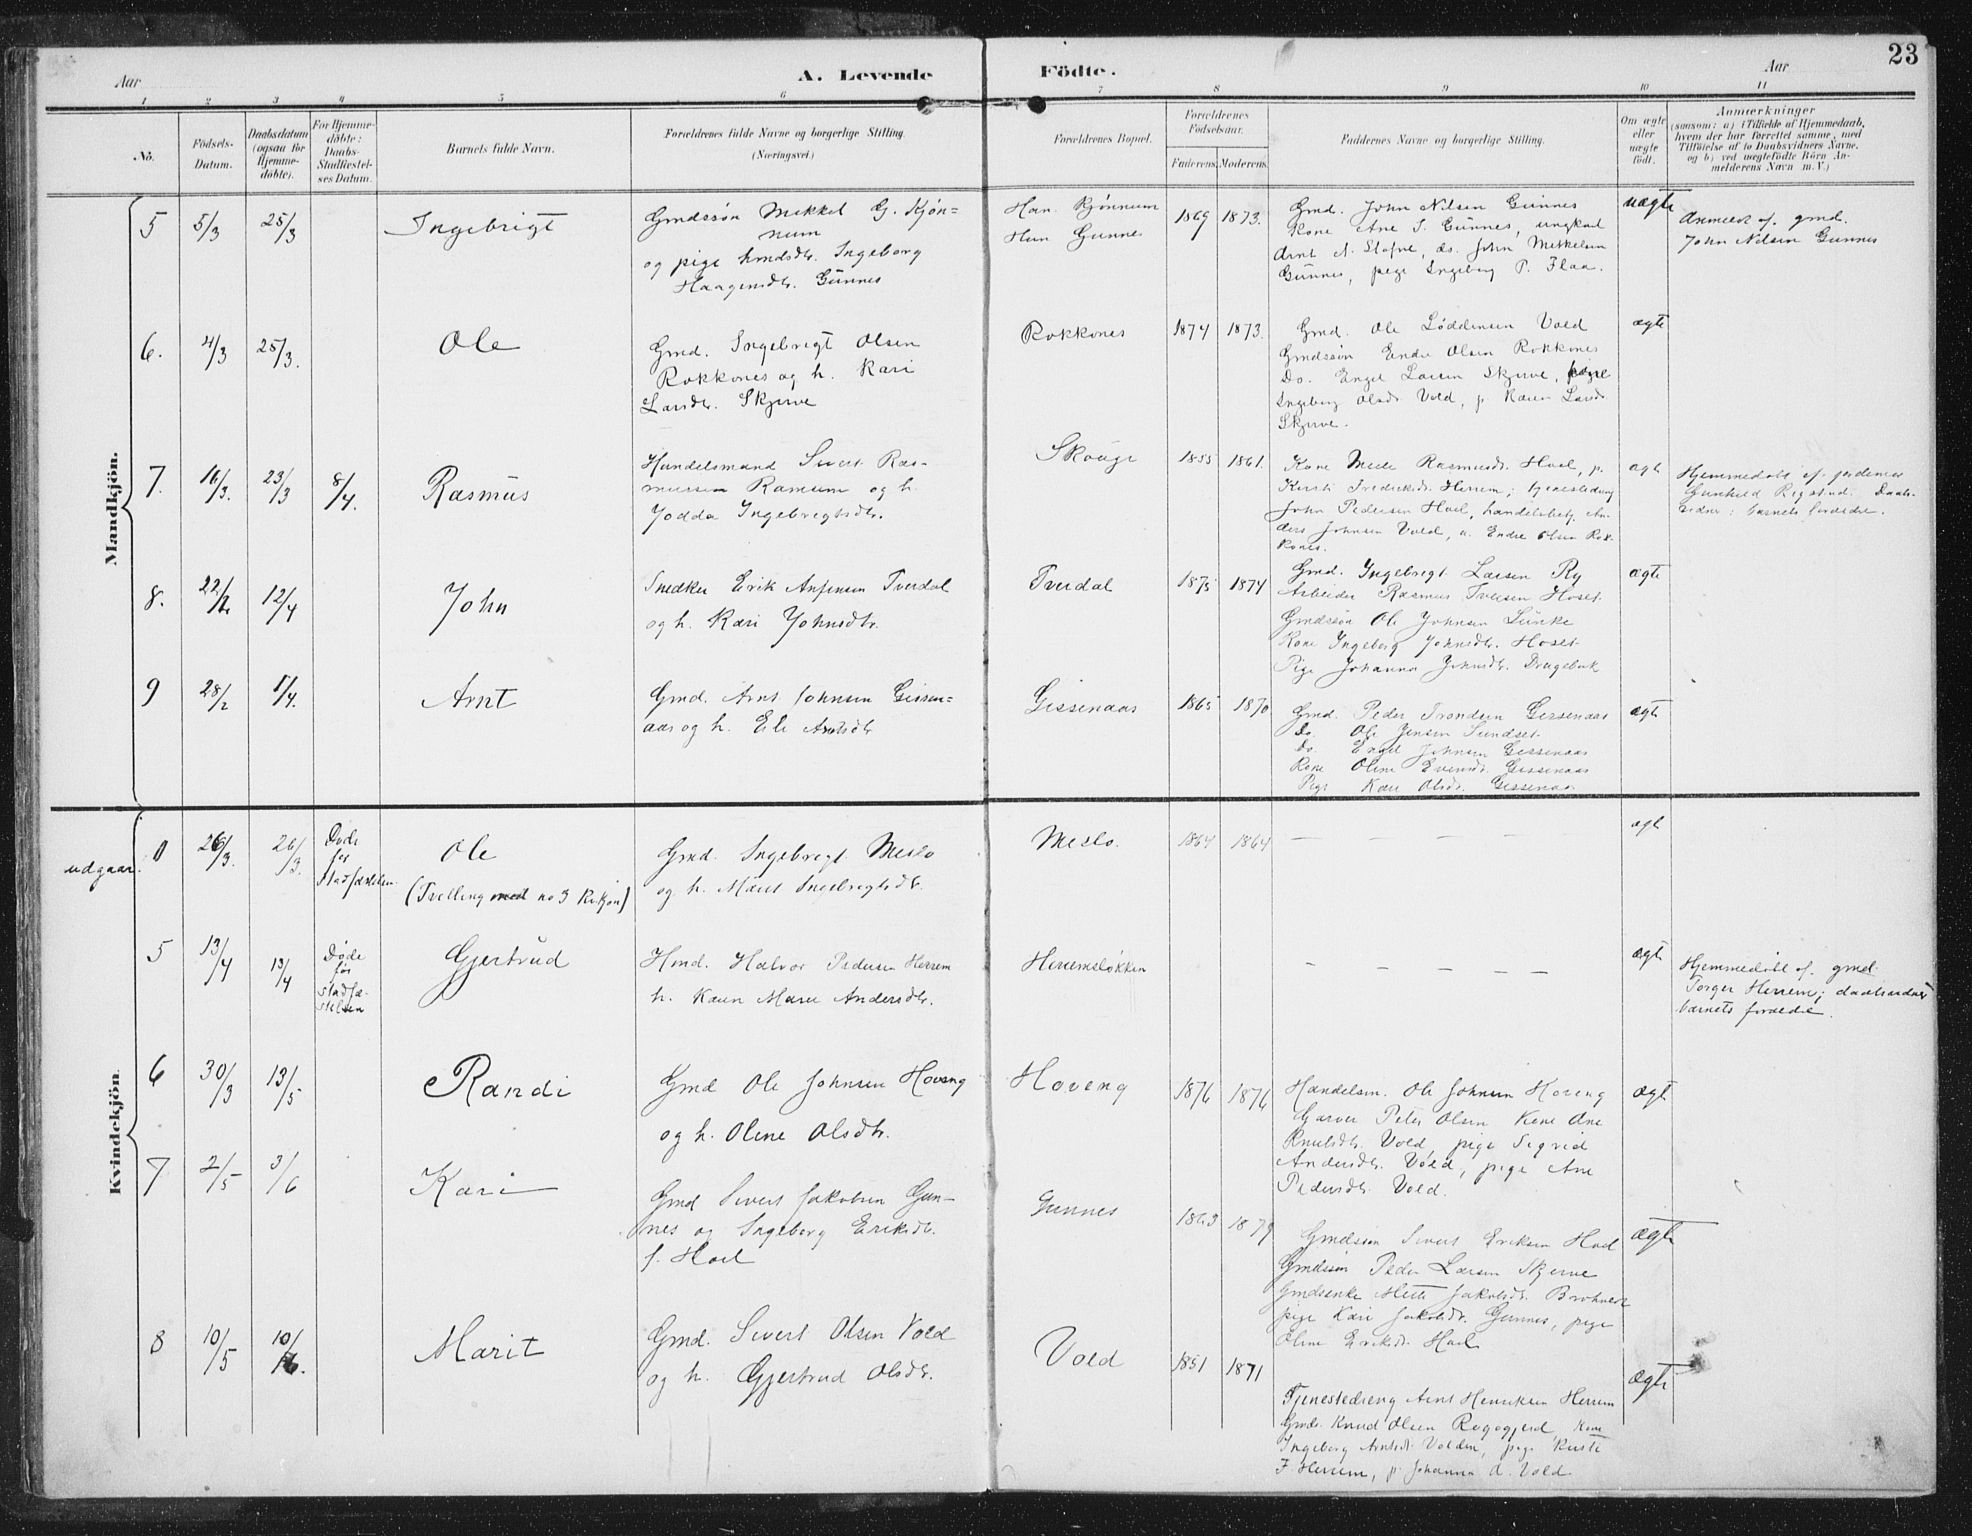 23
Aar
A. Levende Födte.
Aar
1 2 3 4 5 6 7 8 9 10 11
No.
Födsels-
Datum.
Daabsdatum
(ogsaa for
Hjemme-
döbte).
For Hjemme-
döbte:
Daabs-
Stadfæstel-
ses Datum.
Barnets fulde Navn.
Forældrenes fulde Navne og borgerlige Stilling.
(Næringsvei.)
Forældrenes Bopæl.
Forældrenes
Födselsaar.
Faderens. Moderens.
Faddernes Navne og borgerlige Stilling.
Om ægte
eller
uægte
födt.
Anmærkninger
(saasom: a) i Tilfælde af Hjemmedaab,
hvem der har forrettet samme, med
Tilföielse af to Daabsvidners Navne.
og b) ved uægtefödte Börn An-
melderens Navn m. V.)
Mandkjön.
5 5/3 25/3 Ingebrigt
Gmdssøn Mikkel G. Kjøn-
num
og pige hmdsdtr. Ingeborg
Haagensdtr. Gunnes
Han Kjønnum
Hun Gunnes
1869 1873.
Gmd. John Nilsen Gunnes
Kone Ane S. Gunnes, ungkarl
Arnt N. Stafne, ds. John Mikkelsen
Gunnes, pige Ingeborg P. Flaa.
uægte
Anmeldt af gmd.
John Nilsen Gunnes
6. 4/3 25/3. Ole
Gmd. Ingebrigt Olsen
Rokkones og h. Kari
Larsdtr. Skjerve
Rokkones
1874 1873.
Gmd. Ole Løddensen Vold
Gmdssøn Endre Olsen Rokkones
Do. Engel Larsen Skjerve, pige
Ingeborg Olsdtr Vold, p. Karen Larsdtr
Skjerve.
ægte
7. 16/3. 23/3 8/4. Rasmus
Handelsmand Sivert Ras-
mussen Ramsem og h.
Jodda Ingebregtsdtr.
Skauge
1855 1861.
Kone Mette Rasmusdtr. Hoel, p.
Kersti Fredriksdtr. Herrem; tjenestedreng
John Pedersen Hoel, handelsbetj. An-
ders Johnsen Vold, u. Endre Olsen Rok-
kones.
ægte
Hjemmedøbt af jordemor
Gunhild Rigstad. Daabs-
vidner: barnets forældre.
8. 12/4 John
Snedker Erik Anfinsen Tverdal
og h. Kari Johnsdtr.
Tverdal
1875 1874
Gmd. Ingebrigt Larsen Ry
Arbeider Rasmus Iversen Hoset
Gmdssøn Ole Johnsen Lunke
Kone Ingeborg Johnsdtr. Hoset
Pige Johanna Johnsdtr. Dragebak
ægte
9 28/2 1/4. Arnt
Gmd. Arnt Johnsen Gissen-
aas og h. Eli Arntsdtr
Gissenaas
1865 1870
Gmd. Peder Trondsen Gissenaas
Do. Ole Jensen Sundset
Do. Engel Johnsen Gissenaas
Kone Oline Evensdtr. Gissenaas
Pige Kari Olsdtr. Gissenaas
ægte
Kvindekjön.
udgaar. 0 26/3. 26/3.
Døde
før
stadfæstelsen
Ole
(Tvilling med no 3 Kvkjøn)
Gmd. Ingebrigt Meslo
og h. Marit Ingebrigtsdtr.
Meslo.
1864 1864
— — — — —
ægte
5 13/4 13/4
Døde
før
stadfæ-
stelsen
Gjertrud
Hmd. Halvor Pedersen Herrem
h. Karen Marie Andersdtr.
Herremsløkken
— — — — —
ægte
Hjemmedøbt af gmd.
Torger Herrem; daabsvidner
barnets forældre.
6 30/3 13/5 Randi
Gmd Ole Johnsen Hoveng
og h. Oline Olsdtr.
Hoveng
1876 1876
Handelsm. Ole Johnsen Hoveng
Garver Peter Olsen Kone Ane
Knutsdtr. Vold, pige Sigrid
Andersdtr. Vold, pige Ane
Pedersdtr. Vold.
ægte
7 2/5 3/6 Kari
Gmd Sivert Jakobsen Gun-
nes og Ingeborg Eriksdtr.
f. Hoel
Gunnes
1863 1879
Gmdssøn Sivert Eriksen Hoel
Gmdssøn Peder Larsen Skjerve
Gmdsenke Mette Jakobsdtr.
pige Kari Jakobsdtr. Gunnes, pige
Oline Eriksdtr. Hoel
ægte
8 10/5 10/6. Marit
Gmd. Sivert Olsen Vold
og h. Gjertrud Olsdtr.
Vold
1851 1871
Tjenestedreng Arnt Henriksen Herrem
Gmds. Knud Olsen Rogogjerd, Kone
Ingeborg Arntsdtr. Volden, pige Kirsti
F. Herrem, p. Johanna A. Vold
ægte